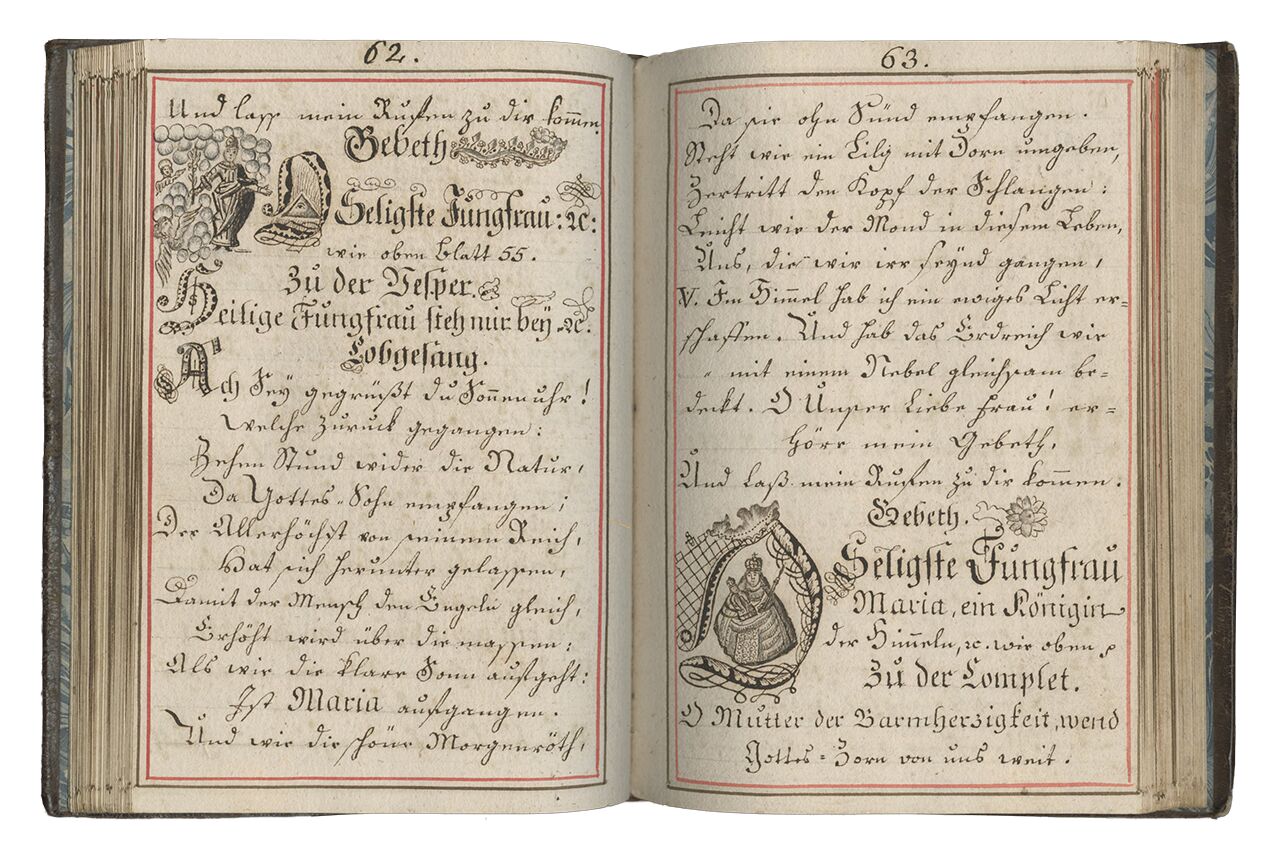 62.
Und lass mein Ruffen zu dir kom̄en.
Gebeth
O
Seligste Jungfrau: ꝛc:
wie oben blatt 55.
Zu der Vesper.
Heilige Jungfrau steh mir bey ꝛc.
Lobgesang.
Ach Sey gegrüßt du Sonnenuhr!
Welche zuruck gegangen:
Zehen Stund wider die Natur,
Da Gottes-Sohn empfangen;
Der Allerhöchst von seinem Reich,
Hat sich herunter gelassen,
Damit der Mensch den Engeln gleich,
Erhöht wird über die massen:
Als wie die klare Sonn aufgeht:
Ist Maria aufgangen.
Und wie die schöne Morgenröth,
63.
Da sie ohn Sünd empfangen.
Steht wie ein Lilg mit Dorn umgeben,
Zertritt den Kopf der Schlangen:
Leicht wie der Mond in diesem Leben,
Uns, die wir irr seynd gangen,
V. Im Him̄el hab ich ein ewiges Licht er=
schaffen. Und hab das Erdreich wie
" mit einem Nebel gleichsam be=
deckt. O Unser Liebe Frau! er=
hörr mein Gebeth,
Und laß mein Ruffen zu dir kom̄en.
Gebeth.
O
Seligste Jungfrau
Maria, ein Königin
der Him̄eln, ꝛc. wie oben
Zu der Complet.
O Mutter der Barmherzigkeit, wend
Gottes=Zorn von uns weit.